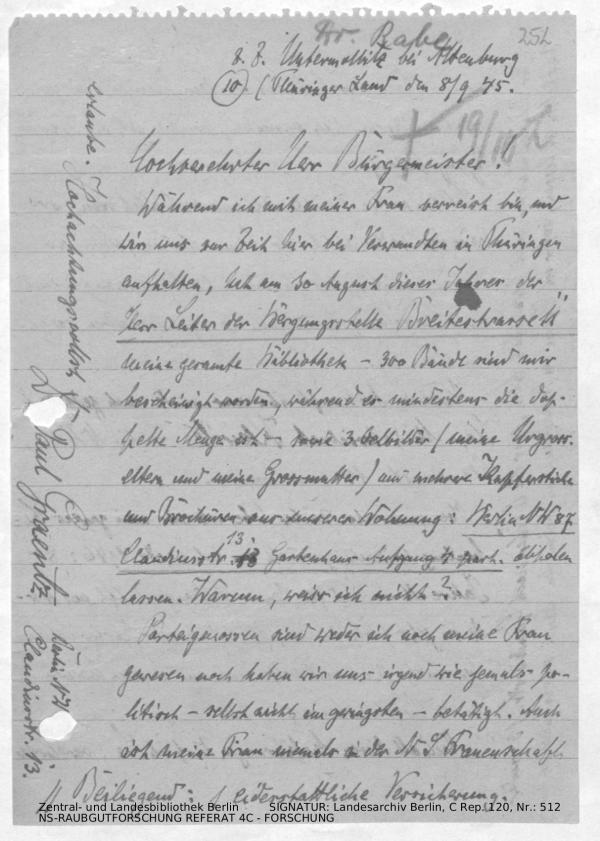 Dr. Rabe
252
z. Z. Untermolbitz bei Altenburg
(10) (Thüringer Land den 8/9 45.
19/10
Hochverehrter Herr Bürgermeister!
Während ich mit meiner Frau verreist bin, und
wir uns zur Zeit hier bei Verwandten in Thüringen
aufhalten, hat am 30 August dieses Jahres der
Herr Leiter der Bergungsstelle Breitestrasse
meine gesamte Bibliothek – 300 Bände sind mir
bescheinigt worden, während es mindestens die dop-
pelte Menge ist – sowie 3 Oelbilder (meine Urgross-
eltern und meine Grossmutter) und mehrere Kupferstiche
und Bröchüren aus unserer Wohnung: Berlin NW 87
Claudiusstr. 13 Gartenhaus Aufgang part. abholen
lassen. Warum, weiss ich nicht?
Parteigenossen sind weder ich noch meine Frau
gewesen noch haben wir uns irgend wie jemals po-
litisch – selbst nicht im geringsten – betätigt. Auch
ist meine Frau niemals in der N S Frauenschaft
Beiliegend: 1 eidesstattliche Versicherung.
erlaube. Hochachtungsvollst
Dr Paul Graentz
Berlin NW
Claudiusstr. 13.
Zentral- und Landesbibliothek Berlin SIGNATUR: Landesarchiv Berlin, C Rep. 120, Nr.: 512
NS-RAUBGUTFORSCHUNG REFERAT 4C - FORSCHUNG